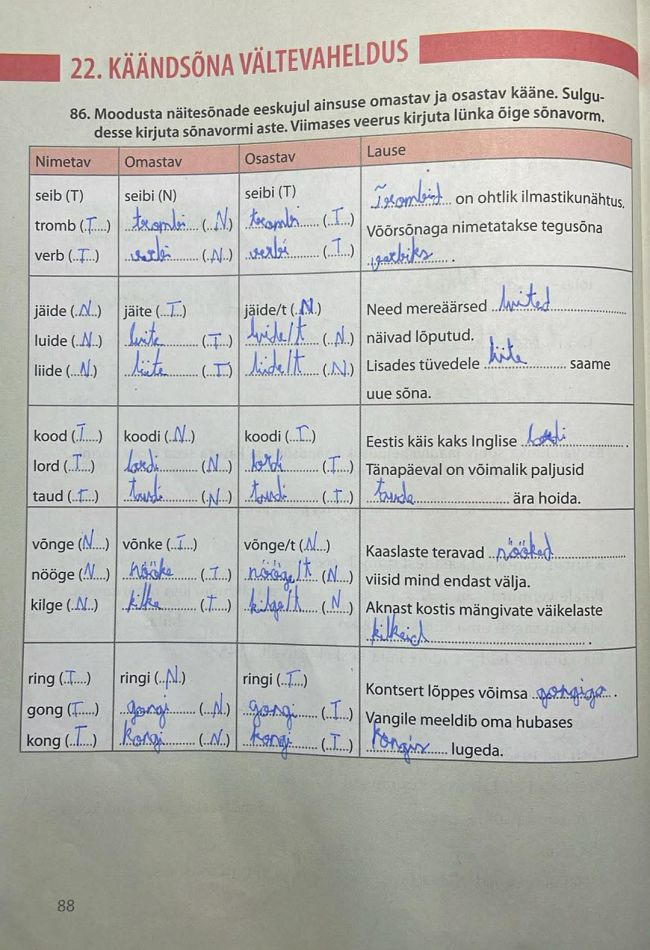 22. KÄÄNDSÕNA VÄLTEVAHELDUS
86. Moodusta näitesõnade eeskujul ainsuse omastav ja osastav kääne. Sulgu-
desse kirjuta sõnavormi aste. Viimases veerus kirjuta lünka õige sõnavorm.
Nimetav Omastav Osastav Lause
seib (T) seibi (N) seibi (T) Trombid on ohtlik ilmastikunähtus.
tromb (..T....) trombi (..N..) trombi (..T...) Võõrsõnaga nimetatakse tegusõna
verb (..T...) verbi (..N..) verbi (..T...) verbiks .
jäide (..N..) jäite (..T...) jäide/t (..N..) Need mereäärsed luited
luide (..N..) luite (..T...) luide/t (..N..) näivad lõputud.
liide (..N..) liite (..T...) liide/t (..N..) Lisades tüvedele liite saame
uue sõna.
kood (..T....) koodi (..N..) koodi (..T...) Eestis käis kaks Inglise lordi .
lord (..T....) lordi (..N..) lordi (..T...) Tänapäeval on võimalik paljusid
taud (..T...) taudi (..N..) taudi (..T...) taude ära hoida.
võnge (N....) võnke (..T...) võnge/t (..N...) Kaaslaste teravad nööked
nööge (N....) nööke (..T...) nööge/t (N...) viisid mind endast välja.
kilge (..N..) kilke (..T...) kilge/t (..N..) Aknast kostis mängivate väikelaste
kilkeid .
ring (..T....) ringi (..N..) ringi (..T...) Kontsert lõppes võimsa gongiga .
gong (T....) gongi (..N..) gongi (..T...) Vangile meeldib oma hubases
kong (..T...) kongi (..N..) kongi (..T...) kongis lugeda.
88